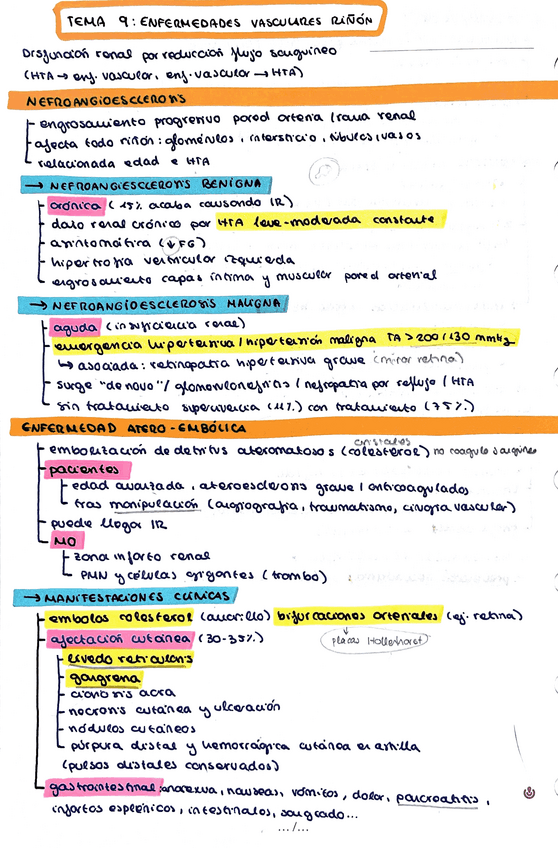 TEMA 9: ENFERMEDADES VASCULARES RIÑÓN
Disfunción renal por reducción flujo sanguíneo
(HTA → enf. vascular, enf. vascular → HTA)
NEFROANGIOESCLEROSIS
engrosamiento progresivo pared arteria/rama renal
afecta todo riñón: glomérulos, intersticio, túbulos, vasos
relacionada edad e HTA
→ NEFROANGIESCLEROSIS BENIGNA
crónica (15% acaba causando IR)
daño renal crónico por HTA leve-moderada constante
asintomática (↓FG)
hipertrofia ventricular izquierda
engrosamiento capas íntima y muscular pared arterial
→ NEFROANGIOESCLEROSIS MALIGNA
aguda (insuficiencia renal)
emergencia hipertensiva/hipertensión maligna TA > 200/130 mmHg
↳ asociada: retinopatía hipertensiva grave (mirar retina)
surge "de novo"/ glomerulonefritis / nefropatía por reflujo / HTA
sin tratamiento supervivencia (1%) con tratamiento (75%)
ENFERMEDAD ATERO-EMBÓLICA
cristales
embolización de detritus ateromatosos (colesterol) no coagulo sanguíneo
pacientes
edad avanzada, ateroesclerosis grave / anticoagulados
tras manipulación (angiografía, traumatismo, cirugía vascular)
puede llegar IR
MO
zona infarto renal
PMN y células gigantes (trombo)
→ MANIFESTACIONES CLÍNICAS
embolos colesterol (amarillo) bifurcaciones arteriales (ej. retina)
afectación cutánea (30-35%)
placas Hollenhorst
livedo reticularis
gangrena
cianosis acra
necrosis cutánea y ulceración
nódulos cutáneos
púrpura distal y hemorrágica cutánea en astilla
(pulsos distales conservados)
gastrointestinal: anorexia, nauseas, vómitos, dolor, pancreatitis,
infartos esplénicos, intestinales, sangrado...
.../...